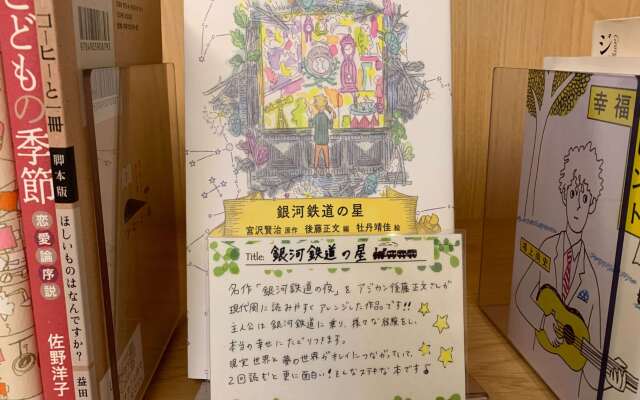 こどもの季節
恋愛論序説
佐野洋子
コーヒーと一冊
脚本版
ほしいものはなんですか?
益田
銀河鉄道の星
宮沢賢治 原作 後藤正文 編 牡丹靖佳 絵
Title: 銀河鉄道の星
名作「銀河鉄道の夜」を アジカン後藤正文さんが
現代風に読みやすく アレンジした作品です!!
主人公は銀河鉄道に乗り、様々な経験をし、
本当の幸せにたどりつきます。
現実世界と夢の世界がキレイにつながっていて、
2回読むと更に面白い!そんなステキな本です♪
幸福
ジ